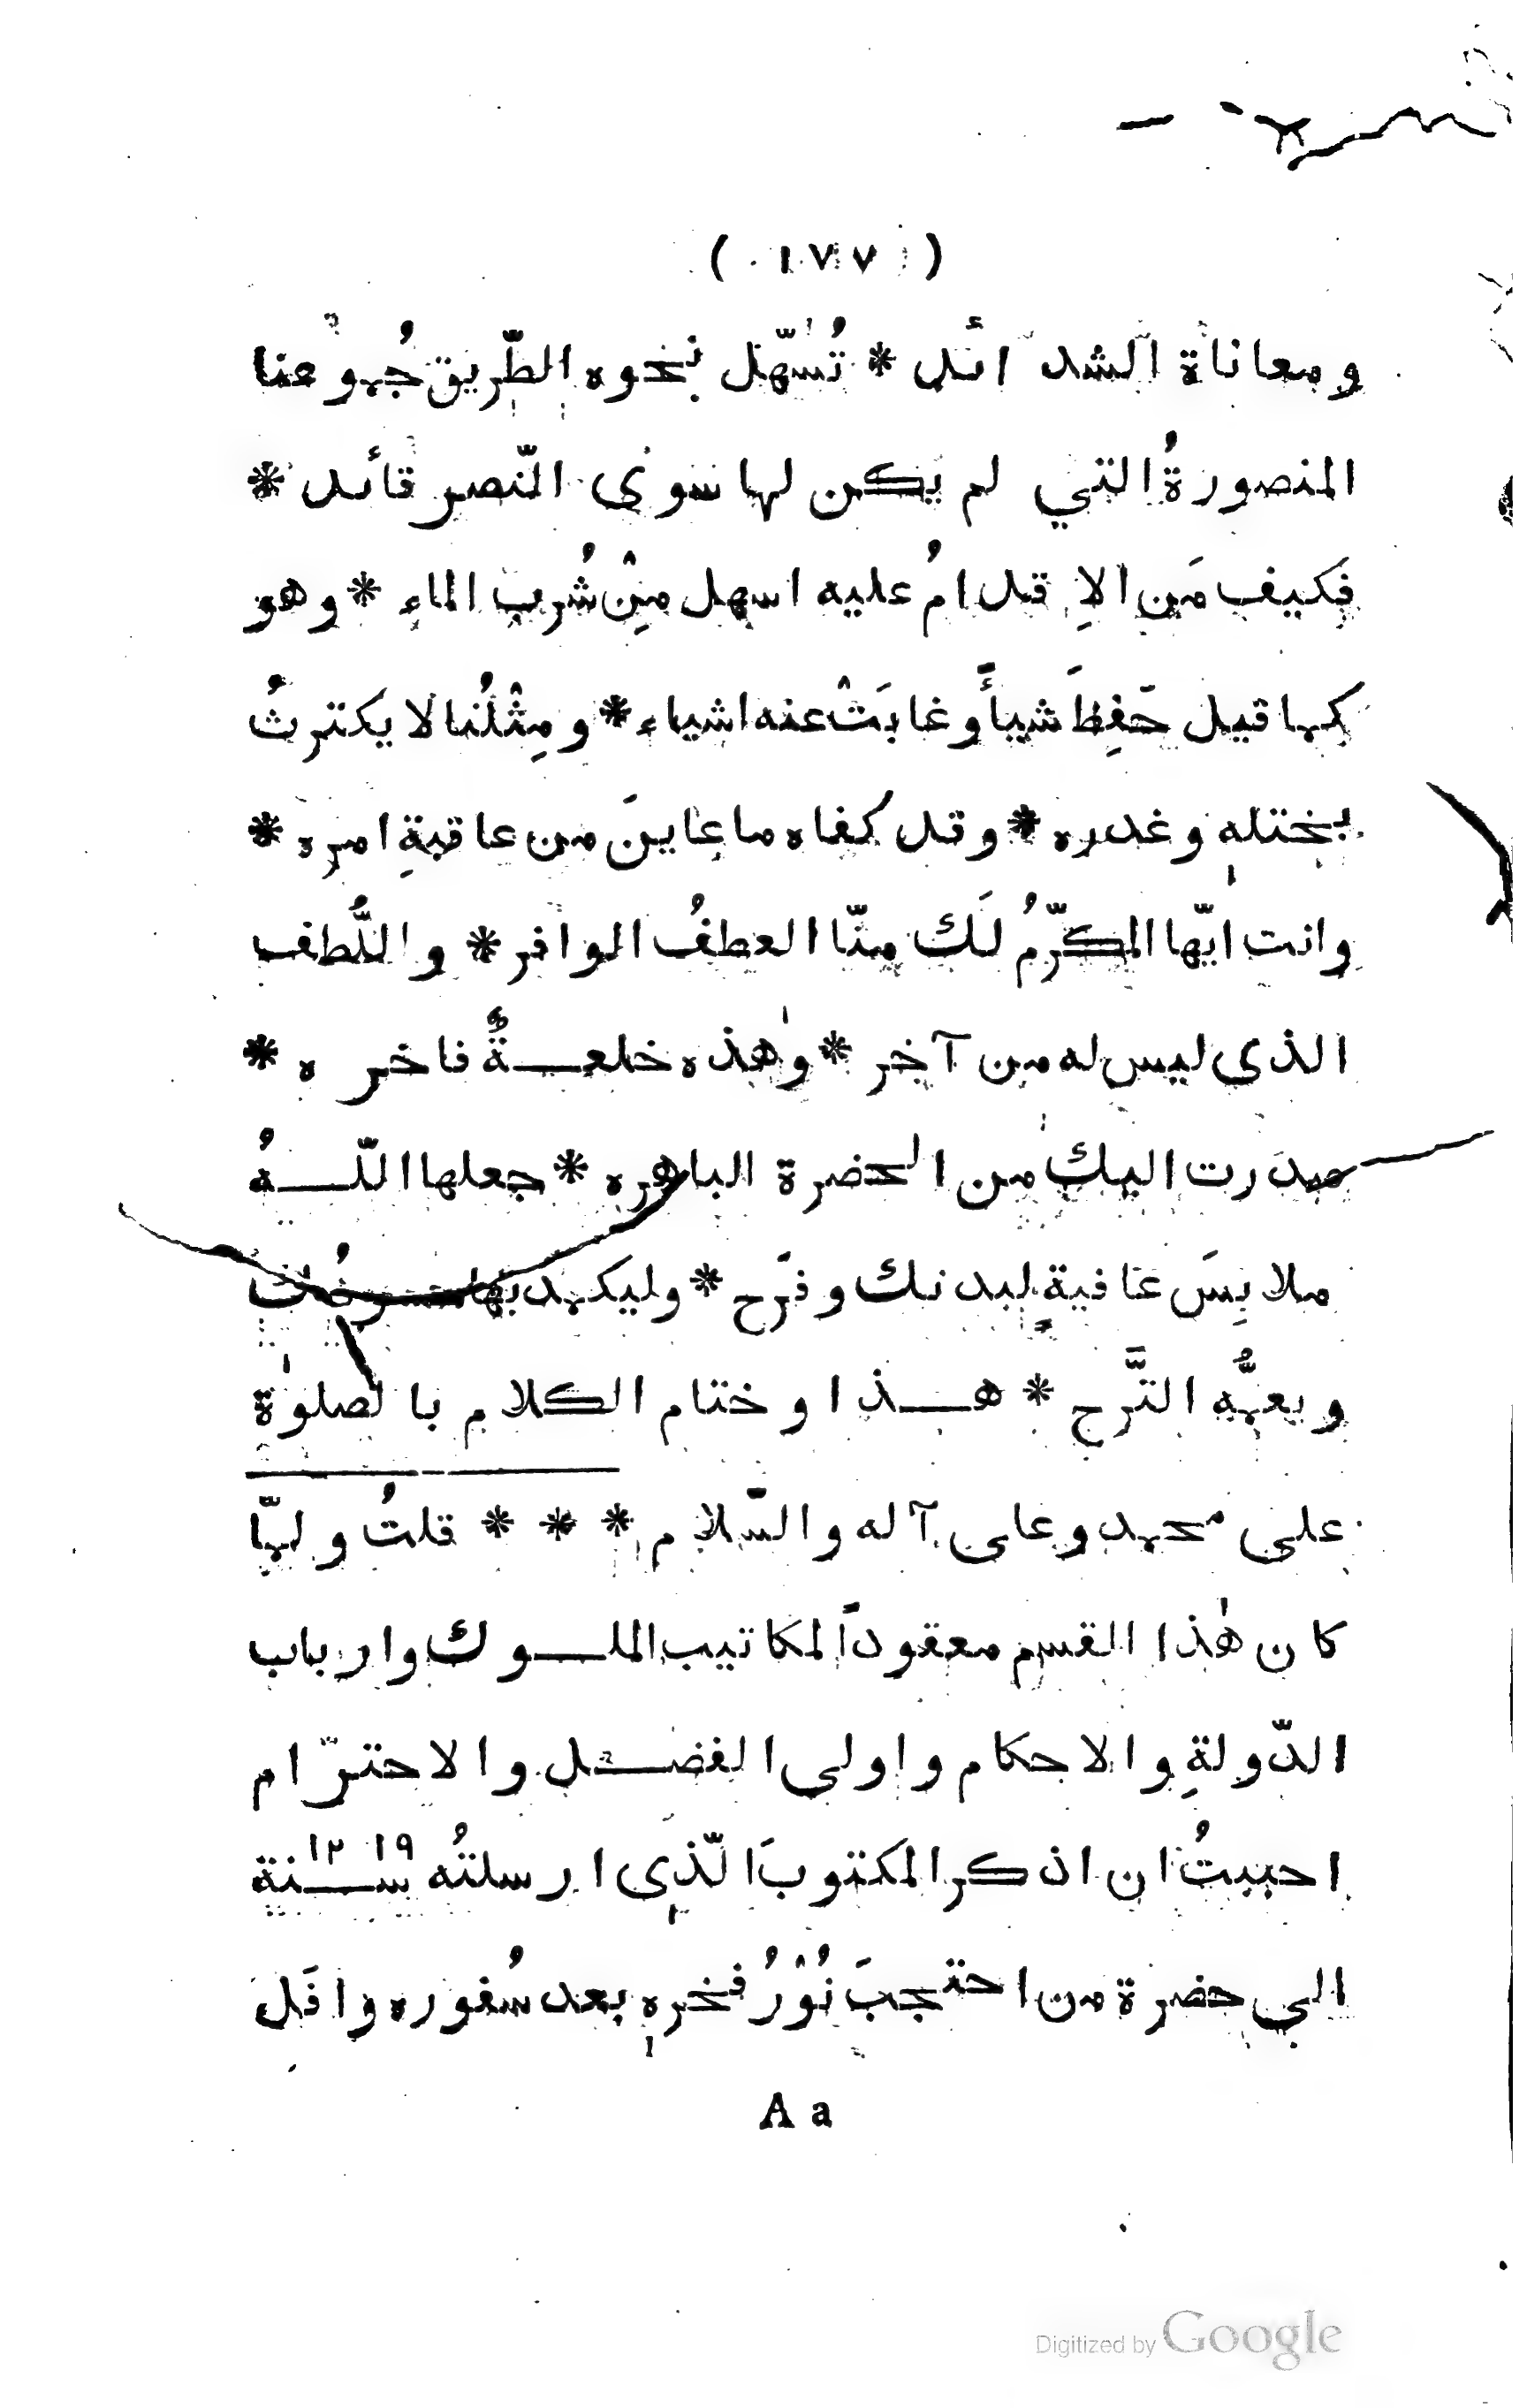 ( ١٧٧ )
ومعاناة الشدائد * تُسَهّل نحوه الطّريق جُموعنا
المنصورةُ التي لم يكن لها سوى النّصر قائد *
فكيف مَن الاِقدامُ عليه اسهل مِنْ شُرب الماء * وهو
كما قيل حَفِظَ شيأً وغابَتْ عنه اشياء * ومِثْلُنا لا يكترثُ
بختله وغدره * وقد كفاه ما عاينَ من عاقبةِ امره *
وانت ايّها المكرّمُ لَك منّا العطفُ الوافر * واللُّطف
الذى ليس له من آخر * وهٰذه خلعةٌ فاخره *
صدرت اليك من الحضرة الباهره * جعلها اللّهُ
ملابِسَ عافيةٍ لبدنك وفَرح * وليكمد بها
ويعمُّه التَّرح * هذا وختام الكلام بالصلوٰة
على محمد وعلى آله والسّلام * * * قلتُ ولمّا
كان هٰذا القسم معقوداً لمكاتيب الملوك وارباب
الدّولةِ والاحكام واولى الفضل والاحترام
احببتُ ان اذكر المكتوبَ الّذى ارسلتُه سنة ١٢١٩
الى حضرة من احتجبَ نُوْرُ فخرِه بعد سُفوره وافَل
A a
Digitized by Google